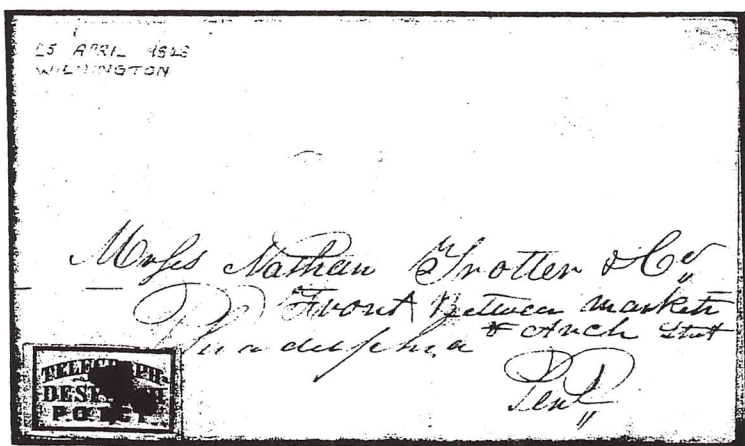 25 APRIL 1848
WILMINGTON
Messs Nathan Trotter & Co
Front Between Market
& Arch Street
Philadelphia
Pena
TELEGRAPH
DES
PO